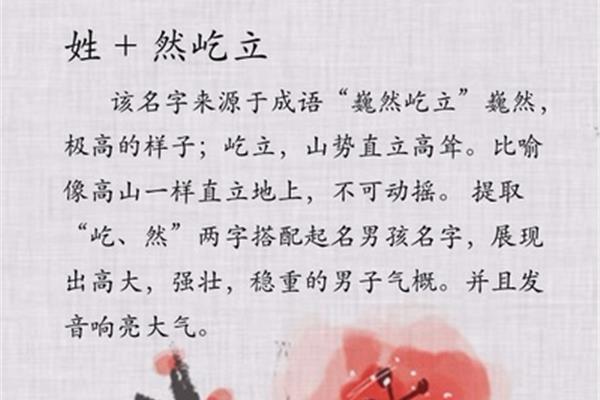 姓 + 然屹立
该名字来源于成语“巍然屹立”巍然，
极高的样子；屹立，山势直立高耸。比喻
像高山一样直立地上，不可动摇。 提取
“屹、然”两字搭配起名男孩名字，展现
出高大，强壮，稳重的男子气概。并且发
音响亮大气。